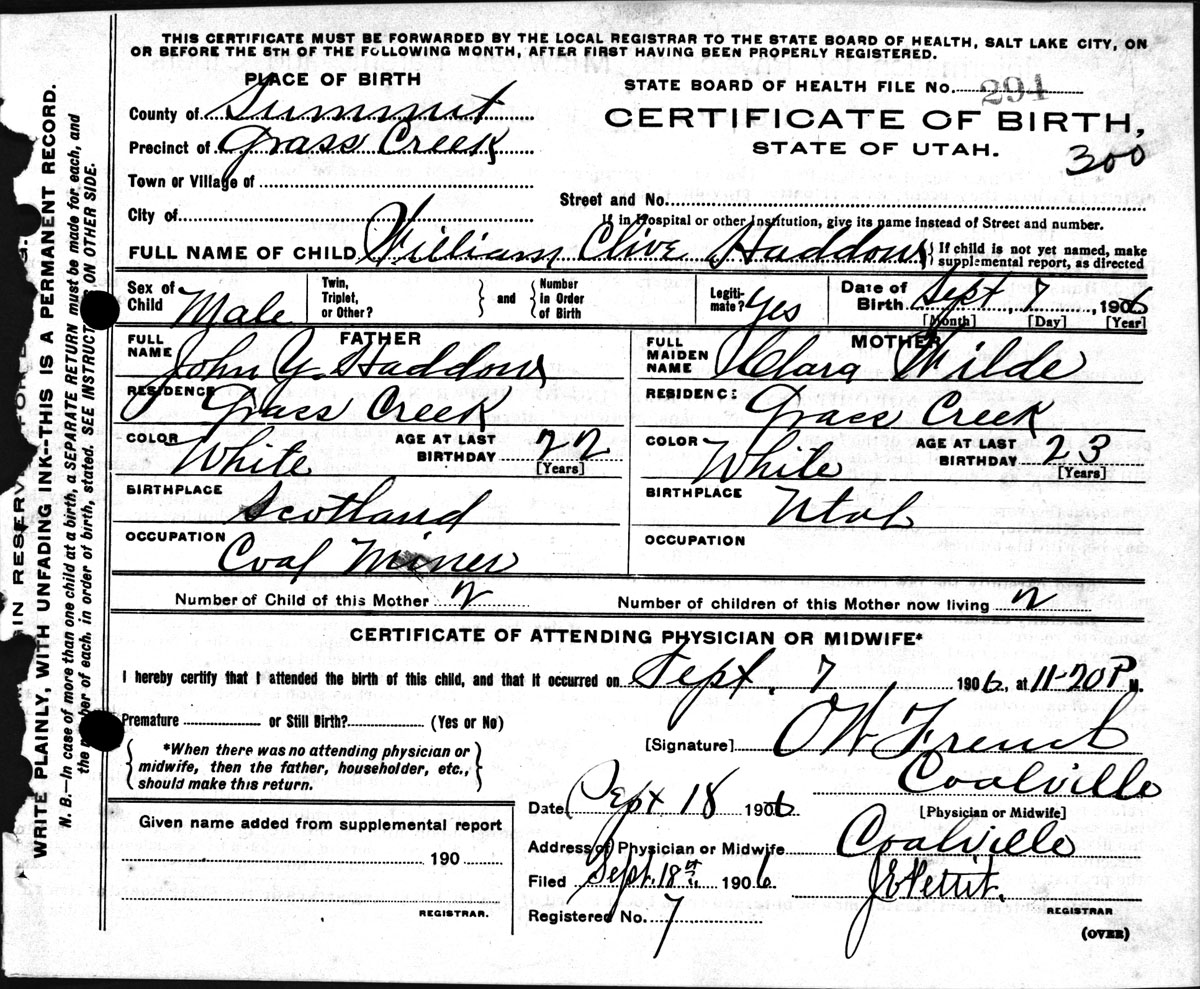 THIS CERTIFICATE MUST BE FORWARDED BY THE LOCAL REGISTRAR TO THE STATE BOARD OF HEALTH, SALT LAKE CITY, ON
OR BEFORE THE 5TH OF THE FOLLOWING MONTH, AFTER FIRST HAVING BEEN PROPERLY REGISTERED.
PLACE OF BIRTH
County of Summit
Precinct of Grass Creek
Town or Village of
City of
STATE BOARD OF HEALTH FILE No. 294
CERTIFICATE OF BIRTH,
STATE OF UTAH.
300
Street and No.
If in Hospital or other Institution, give its name instead of Street and number.
FULL NAME OF CHILD William Clive Haddon { If child is not yet named, make
supplemental report, as directed
Sex of Child Male
Twin, Triplet, or Other? } and { Number in Order of Birth
Legiti-mate? Yes
Date of Birth Sept 7, 1906
[Month] [Day] [Year]
FATHER
FULL NAME John Y. Haddon
RESIDENCE Grass Creek
COLOR White AGE AT LAST BIRTHDAY 22
[Years]
BIRTHPLACE Scotland
OCCUPATION Coal Miner
MOTHER
FULL MAIDEN NAME Clara Wilde
RESIDENCE Grass Creek
COLOR White AGE AT LAST BIRTHDAY 23
[Years]
BIRTHPLACE Utah
OCCUPATION
Number of Child of this Mother 2 Number of children of this Mother now living 2
CERTIFICATE OF ATTENDING PHYSICIAN OR MIDWIFE*
I hereby certify that I attended the birth of this child, and that it occurred on Sept. 7 1906, at 11-20 P M.
Premature or Still Birth? (Yes or No)
{ *When there was no attending physician or
midwife, then the father, householder, etc.,
should make this return. }
[Signature] O W French
Coalville
[Physician or Midwife]
Date Sept 18 1906
Address of Physician or Midwife Coalville
Filed Sept. 18th 1906 J E Pettit.
REGISTRAR
Registered No. 7
(OVER)
Given name added from supplemental report
190
REGISTRAR.
IN RESERV
WRITE PLAINLY, WITH UNFADING INK--THIS IS A PERMANENT RECORD.
N. B.—In case of more than one child at a birth, a SEPARATE RETURN must be made for each, and
the ber of each. in order of birth, stated. SEE INSTRUCT S ON OTHER SIDE.